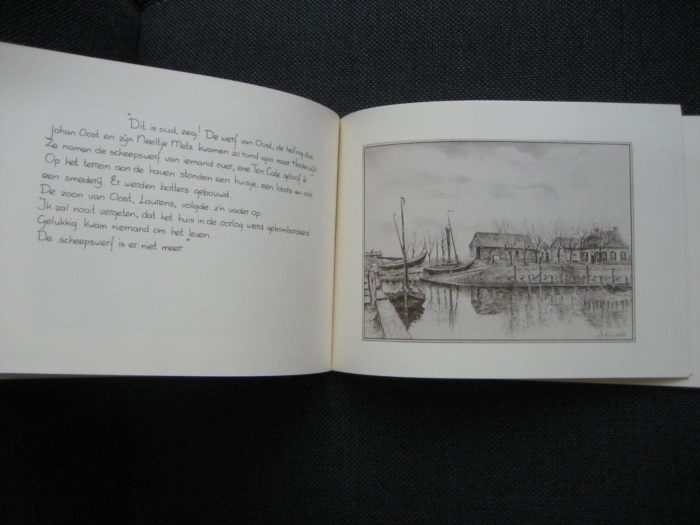 "Dit is oud, zeg! De werf van Oost, de helling dus
Johan Oost en zijn Neeltje Metz kwamen zo rond 1900 naar Harderwijk
Ze namen de scheepswerf van iemand over, ene Ten Cate geloof ik
Op het terrein aan de haven stonden een huisje, een loods en ook
een smederij. Er werden botters gebouwd.
De zoon van Oost, Laurens, volgde z'n vader op.
Ik zal nooit vergeten, dat het huis in de oorlog werd gebombardeerd
Gelukkig kwam niemand om het leven.
De scheepswerf is er niet meer."